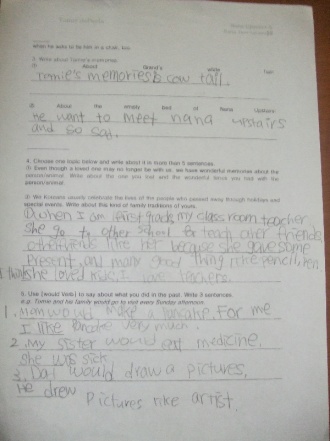 when he asks to tie him in a chair, too.
3. Write about Tomie's memories.
(1) About Grand's white hair
Tomie's memories is cow tail.
(2) About the empty bed of Nana Upstairs
He want to meet nana upstairs
and so sad.
4. Choose one topic below and write about it in more than 5 sentences.
(1) Even though a loved one may no longer be with us, we have wonderful memories about the
person/animal. Write about the one you lost and the wonderful times you had with the
person/animal.
(2) We Koreans usually celebrate the lives of the people who passed away through holidays and
special events. Write about this kind of family traditions of yours.
① when I am first grade, my class room teacher
she go to other school for teach other friends,
other friends like her because she gave some
present, and many good thing like pencil, pen
I think she loved kids. I love teachers.
5. Use {would verb} to say about what you did in the past. Write 3 sentences.
e.g. Tomie and his family would go to visit every Sunday afternoon.
1. Mam would make a pancake. For me
I like pancake very much.
2. My sister would eat medicine.
she was sick.
3. Dad would draw a pictures.
He drew
pictures like artist.